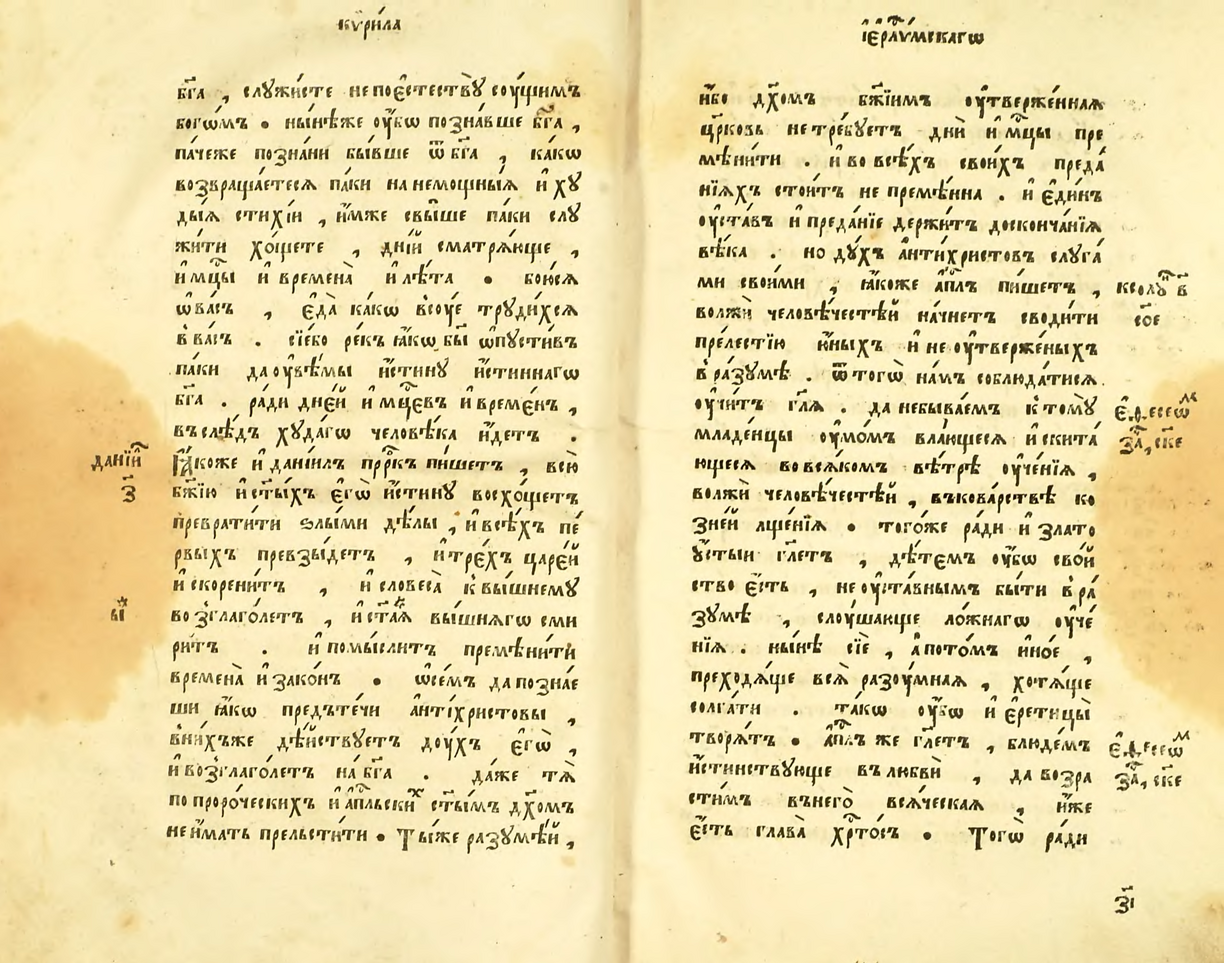 кѷри́ла
бг҃а , слꙋжи́сте не по є҆стествꙋ̀ сꙋ́щимъ
бого́мъ . ны́нѣже ѹ҆́бѡ позна́вше бг҃а ,
па́чеже позна́ни бы́вше ѿ бг҃а , ка́кѡ
возвраща́етеся па́ки на немощны́ѧ и҆ хꙋ
ды́ѧ стихі́и , и҆́мже свы́ше па́ки слꙋ
жи́ти хо́щете , дні́й сматря́юще ,
и мц҃ы и҆ времена̀ и҆ лѣ́та . бою́сѧ
ѡ҆ ва́съ , є҆да̀ ка́кѡ всꙋ́е трꙋди́хсѧ
в ва́съ . сі́ебо ре́къ ꙗ҆́кѡ бы ѡ҆пꙋсти́въ
па́ки да ѹ҆вѣ́мы и҆́стинꙋ и҆́стиннагѡ
бг҃а . ра́ди дне́й и мц҃евъ и҆ време́нъ ,
въ слѣ́дъ хꙋда́гѡ человѣ́ка и҆́детъ .
Ꙗ҆́коже и҆ данїи́лъ прⷪ҇ркъ пи́шетъ , всю̀
бж҃їю и҆ ст҃ы́хъ є҆гѡ̀ и҆́стинꙋ восхо́щетъ
преврати́ти ѕлы́ми дѣ́лы , и҆ всѣ́хъ пе́
рвыхъ превзы́детъ , и҆ тре́хъ царе́й
и҆ скорени́тъ , и҆ словеса̀ к вы́шнемꙋ
возглаго́летъ , и҆ ст҃а́ѧ вы́шнѧгѡ сми
ри́тъ . и҆ помы́слитъ премѣни́ти
времена̀ и҆ зако́нъ . ѡ҆ се́мъ да позна́е
ши ꙗ҆́кѡ предъте́чи а҆нті́христовы ,
в ни́хъже дѣ́йствꙋетъ дꙋ́хъ є҆гѡ̀ ,
и҆ возглаго́летъ на̀ бг҃а . да́же тѧ̀
по проро́ческихъ и҆ а҆пⷭ҇льскиⷯ ст҃ы́мъ дх҃омъ
не и҆́мать прельсти́ти . Ты́же разꙋмѣ́й ,
данїи́ⷧ
з҃
в҃і
і҆ерⷭ҇лѵ́мскагѡ
и҆́бо дх҃омъ бж҃їимъ ѹ҆твержє́ннаѧ
цр҃ковь не тре́бꙋетъ дни̑ и҆ мц҃ы пре
мѣни́ти . и҆ во всѣ́хъ свои́хъ преда́
нїѧхъ стои́тъ не премѣ́нна . и҆ є҆ди́нъ
ѹ҆ста́въ и҆ преда́нїе держи́тъ до сконча́нїѧ
вѣ́ка . но дꙋ́хъ а҆нти́христовъ слꙋга́
ми свои́ми , ꙗ҆́коже а҆пⷭ҇лъ пи́шетъ ,
волжѝ человѣ́честѣй на́чнетъ своди́ти
пре́лестїю и҆ны́хъ и҆ не ѹ҆твержє́ныхъ
в ра́зꙋмѣ . ѿ тогѡ̀ на́мъ соблюда́тисѧ
ѹ҆чи́тъ гл҃ѧ . да не быва́емъ к томꙋ̀
младе́нцы ѹ҆мо́мъ влающесѧ и҆ скита́
ющесѧ во всѧ́комъ вѣ́трѣ ѹ҆че́нїѧ ,
волжѝ человѣ́честѣй , въ кова́рствѣ ко́
зней лще́нїѧ . того́же ра́ди и҆ злато
ꙋ́стыи гл҃етъ , дѣ́темъ ѹ҆́бѡ сво́й
ство є҆́сть , не ѹ҆ста́внымъ бы́ти в ра́
зꙋмѣ , слꙋ́шающе ло́жнагѡ ѹ҆че́
нїѧ . ны́нѣ сїѐ , а҆ пото́мъ и҆но́е ,
преходѧ́ще всѧ̀ разꙋ́мнаѧ , хотѧ́ще
солга́ти . та́кѡ ѹ҆́бѡ и҆ є҆рети́цы
творѧ́тъ . а҆пⷭ҇лъ же гл҃етъ , блюде́мъ
и҆́стинствꙋюще въ любвѝ , да возра
сти́мъ въ него̀ всѧ́ческаѧ , и҆́же
є҆́сть глава̀ хр҃то́съ . Тогѡ̀ ра́ди
к солꙋⷩ҇ в҃
сое
є҆ фесеѡⷨ
за҃, ске
є҆ фесеѡⷨ
за҃, ске
з҃і